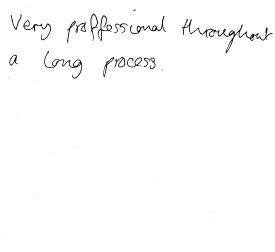 Very proffessional throughout
a long process.